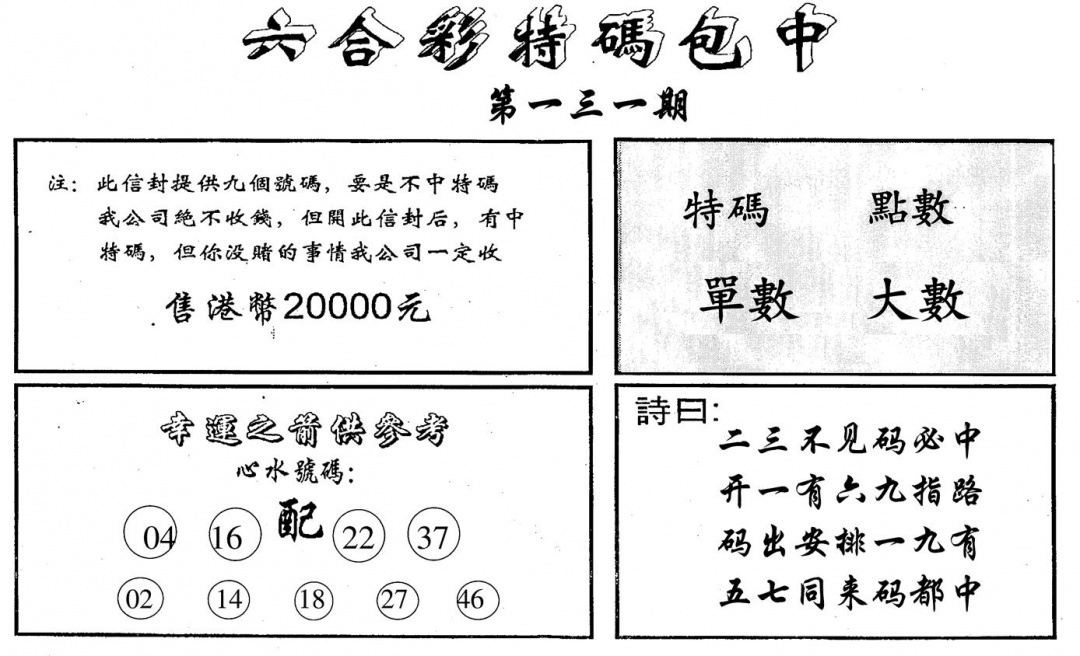 六合彩特碼包中
第一三一期
注：此信封提供九個號碼，要是不中特碼
我公司絕不收錢，但開此信封后，有中
特碼，但你没賭的事情我公司一定收
售港幣20000元
特碼 點數
單數 大數
幸運之箭供參考
心水號碼：
04 16 配 22 37
02 14 18 27 46
詩曰：
二三不见码必中
开一有六九指路
码出安排一九有
五七同来码都中